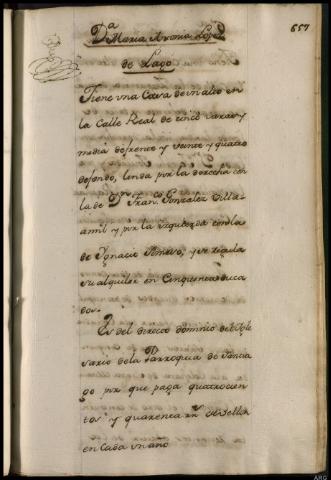 657
Dª Maria Antonia Lopez
de Lago
Tiene una Casa de un alto en
la Calle Real de cinco varas y
media de frente y veinte y quatro
de fondo, linda por la derecha con
la de Dn Franco Gonzalez Villa-
amil y por la izquierda con la
de Ygnacio, y se regula
su alquiler en Cinquenta duca
dos.
Es del directo dominio del
sario de la Parroquia de Santia
go por que paga quatrocien
tos y quarenta rs de vellon
en cada un año
ARG